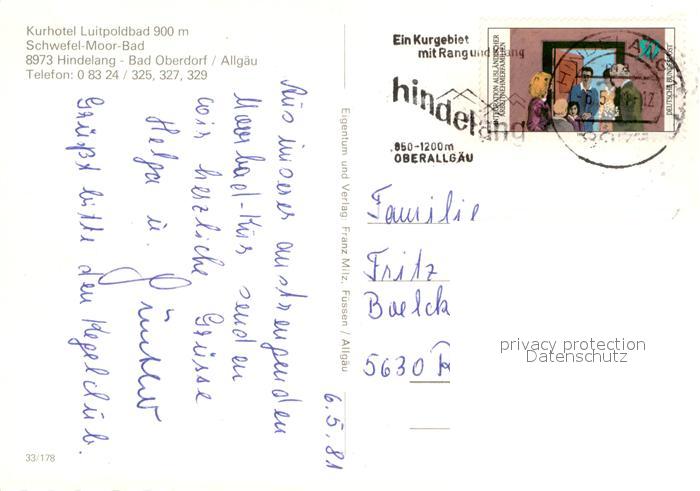 Kurhotel Luitpoldbad 900 m
Schwefel-Moor-Bad
8973 Hindelang - Bad Oberdorf / Allgäu
Telefon: 0 83 24 / 325, 327, 329
Aus unserer anstrengenden
Moorbad-Kur senden
wir herzliche Grüsse
Helga u.
Grüßt bitte den Kegelclub.
6.5.81
33/178
Eigentum und Verlag: Franz Milz, Füssen / Allgäu
Ein Kurgebiet
mit Rang und Klang
hindelang
850-1200m
OBERALLGÄU
INTEGRATION AUSLÄNDISCHER
ARBEITNEHMERFAMILIEN
DEUTSCHE BUNDESPOST
Familie
Fritz
Boelck
5630
privacy protection
Datenschutz